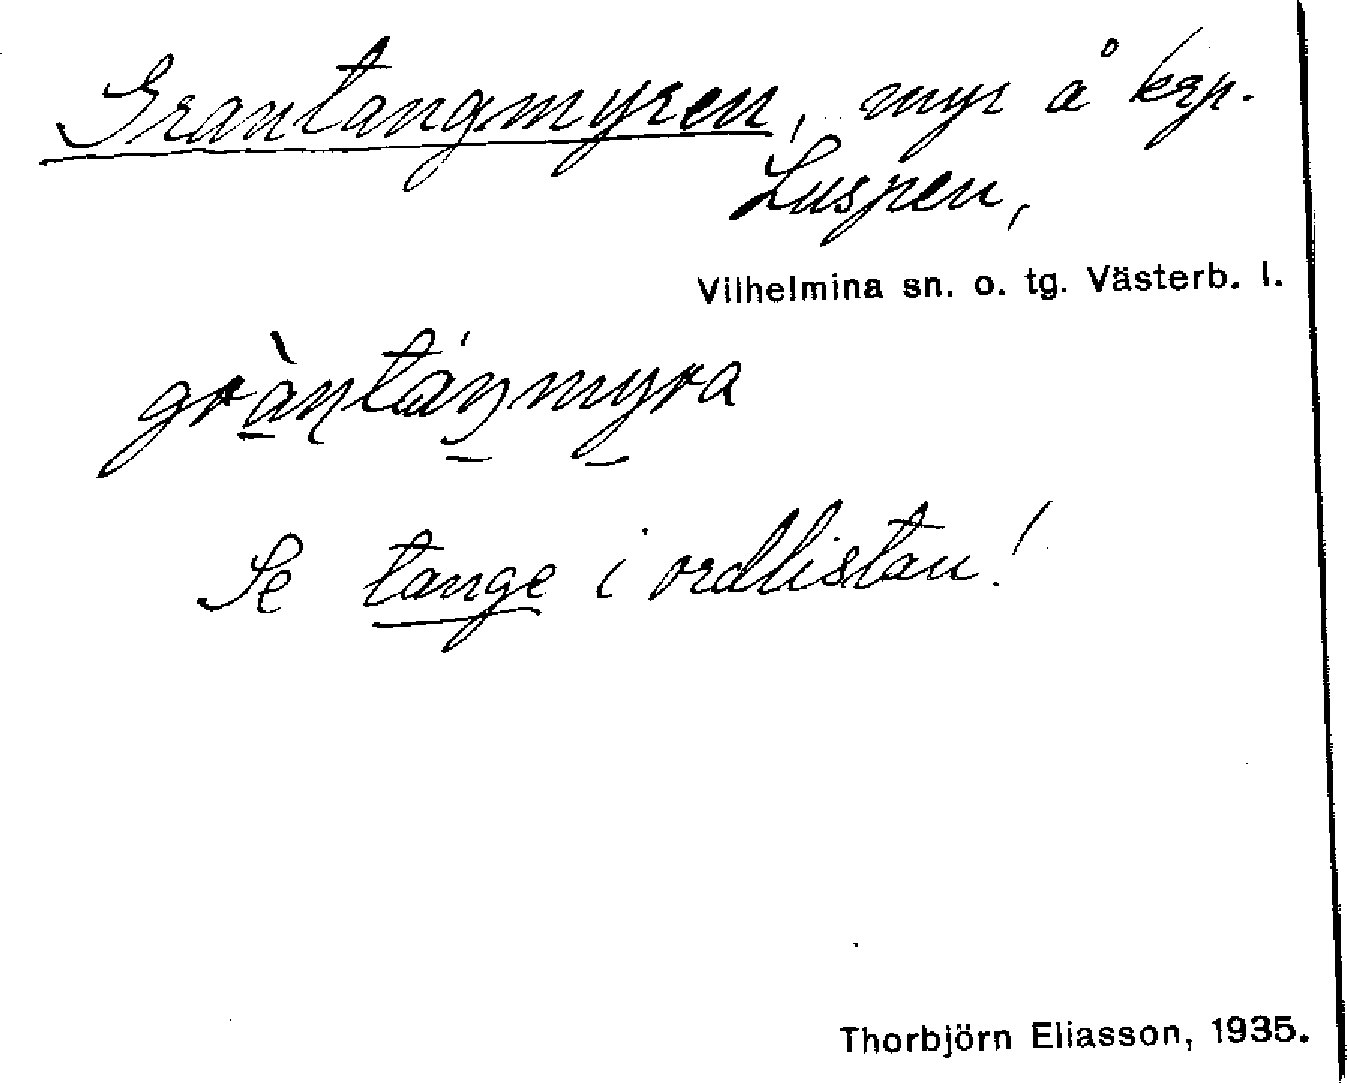 Grantangmyren, myr å krp.
Luspen,
Vilhelmina sn. o. tg. Västerb. l.
gràntáŋmyra
Se tange i ordlistan!
Thorbjörn Eliasson, 1935.